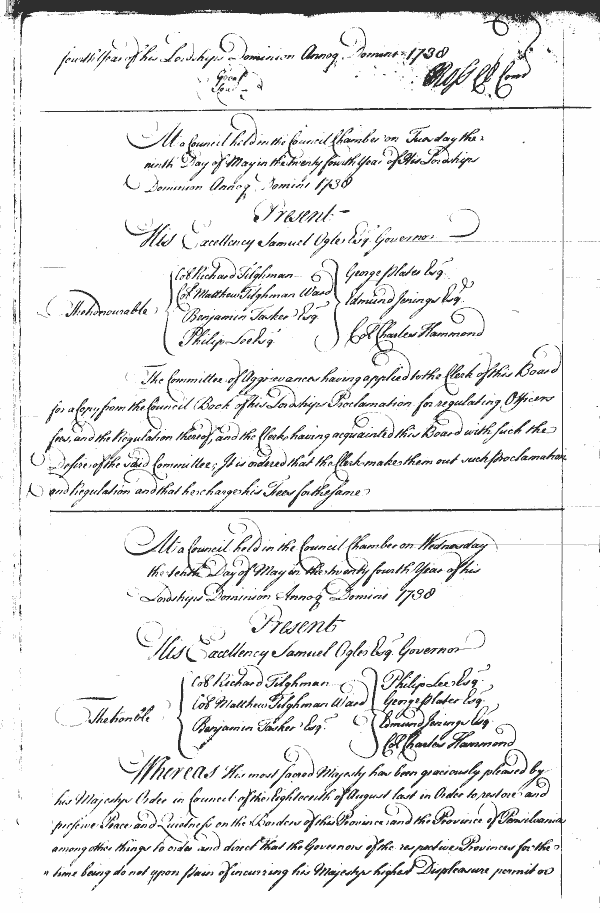 fourth Year of his Lordships Dominion Annoq Domini 1738
At a Council held in the Council Chamber on Tuesday the
ninth Day of May in the twenty fourth Year of His Lordships
Dominion Annoq Domini 1738
Present
His Excellency Samuel Ogle Esq Governor
The honourable
Col Richard Tilghman
Col Matthew Tilghman Ward
Benjamin Tasker Esq
Philip Lee Esq
George Plater Esq
Edmund Jenings Esq
Col Charles Hammond
The Committee of Aggrievances having applied to the Clerk of this Board
for a Copy from the Council Book of his Lordships Proclamation for regulating Officers
fees, and the Regulation thereof, and the Clerk having acquainted this Board with such the
Desire of the said Committee; It is ordered that the Clerk make them out such Proclamation
and Regulation and that he charge his Fees for the same
At a Council held in the Council Chamber on Wednesday
the tenth Day of May in the twenty fourth Year of his
Lordships Dominion Annoq Domini 1738
Present
His Excellency Samuel Ogle Esq Governor
The honble
Col Richard Tilghman
Col Matthew Tilghman Ward
Benjamin Tasker Esq
Philip Lee Esq
George Plater Esq
Edmund Jenings Esq
Col Charles Hammond
Whereas His most sacred Majesty has been graciously pleased by
his Majestys Order in Council of the Eighteenth of August last in Order to restore and
preserve Peace and Quietness on the Borders of this Province and the Province of Pensilvania
among other things to order and direct that the Governors of the respective Provinces for the
time being do not upon pain of incurring his Majestys highest Displeasure permit or